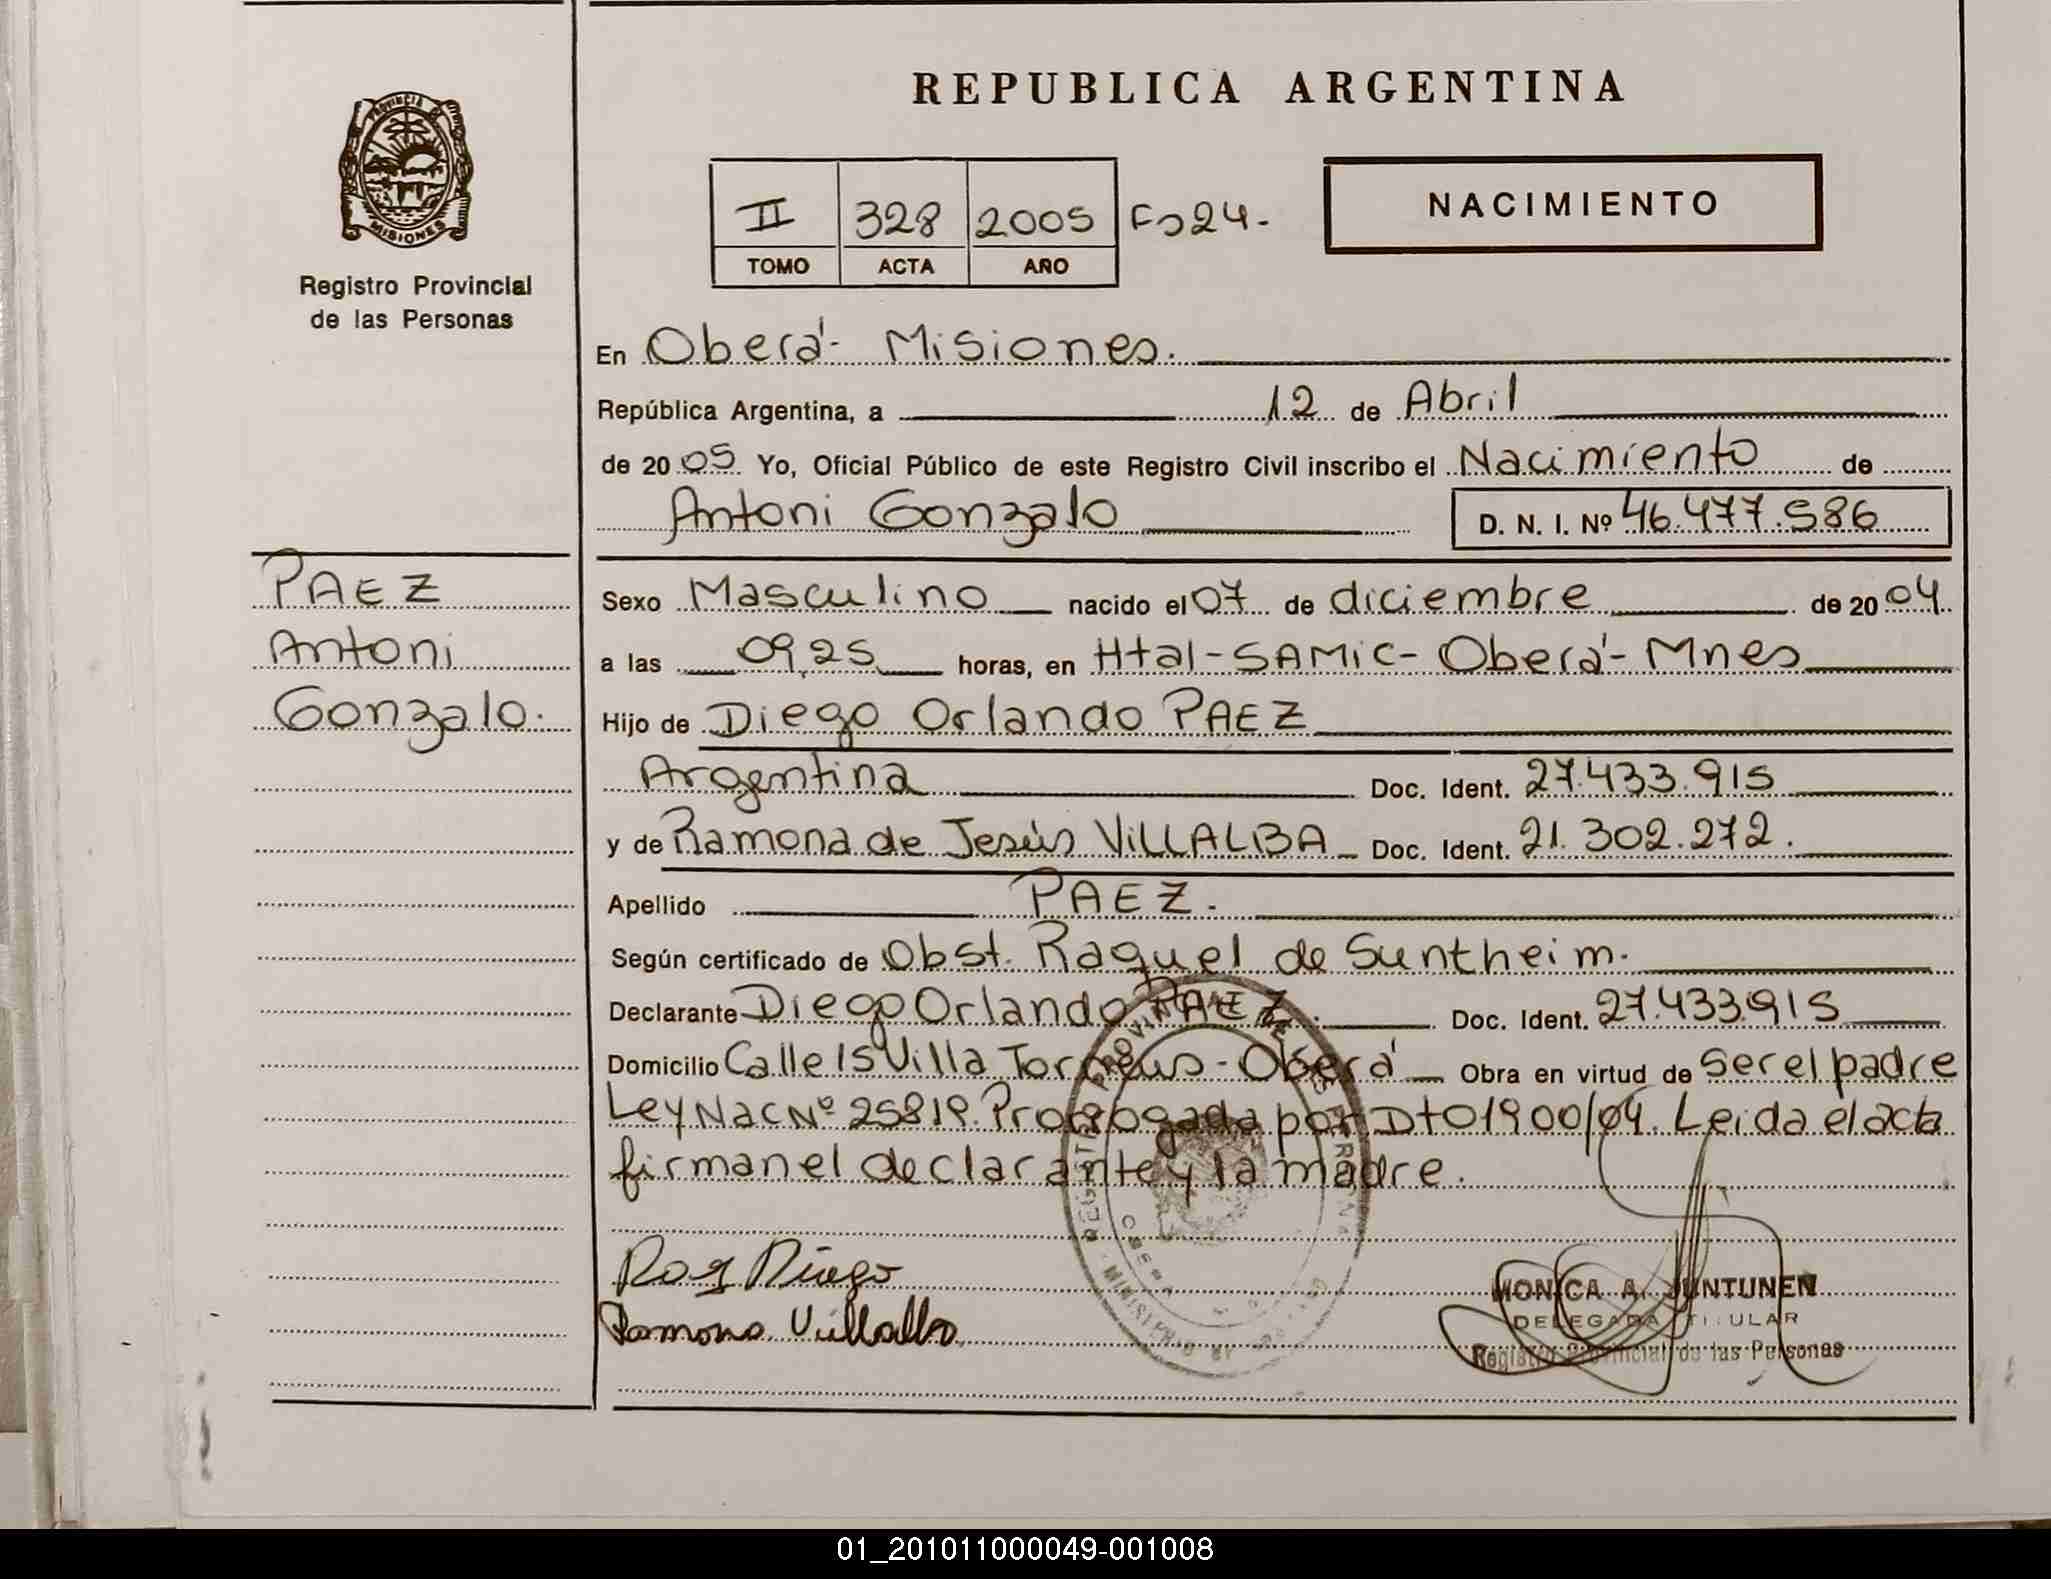 REPUBLICA ARGENTINA
PROVINCIA DE
MISIONES
Registro Provincial
de las Personas
II 328 2005 Fo 24-
TOMO ACTA AÑO
NACIMIENTO
En Oberá- Misiones.
República Argentina, a 12 de Abril
de 2005 Yo, Oficial Público de este Registro Civil inscribo el Nacimiento de
Antoni Gonzalo D. N. I. Nº 46.477.586
PAEZ
Antoni
Gonzalo.
Sexo Masculino nacido el 07 de diciembre de 2004
a las 09,25 horas, en Htal-SAMIC- Oberá- Mnes
Hijo de Diego Orlando PAEZ
Argentina Doc. Ident. 27.433.915
y de Ramona de Jesús VILLALBA Doc. Ident. 21.302.272.
Apellido PAEZ.
Según certificado de Obst. Raquel de Suntheim.
Declarante Diego Orlando PAEZ. Doc. Ident. 27.433.915
Domicilio Calle 15 Villa - Oberá Obra en virtud de Ser el padre
Ley Nac Nº 25819. Prorrogada por Dto 1900/04. Leida el acta
firman el declarante y la madre.
Diego
Ramona Villalba
MONICA A. JUNTUNEN
DELEGADA TITULAR
Registro Provincial de las Personas
01_201011000049-001008